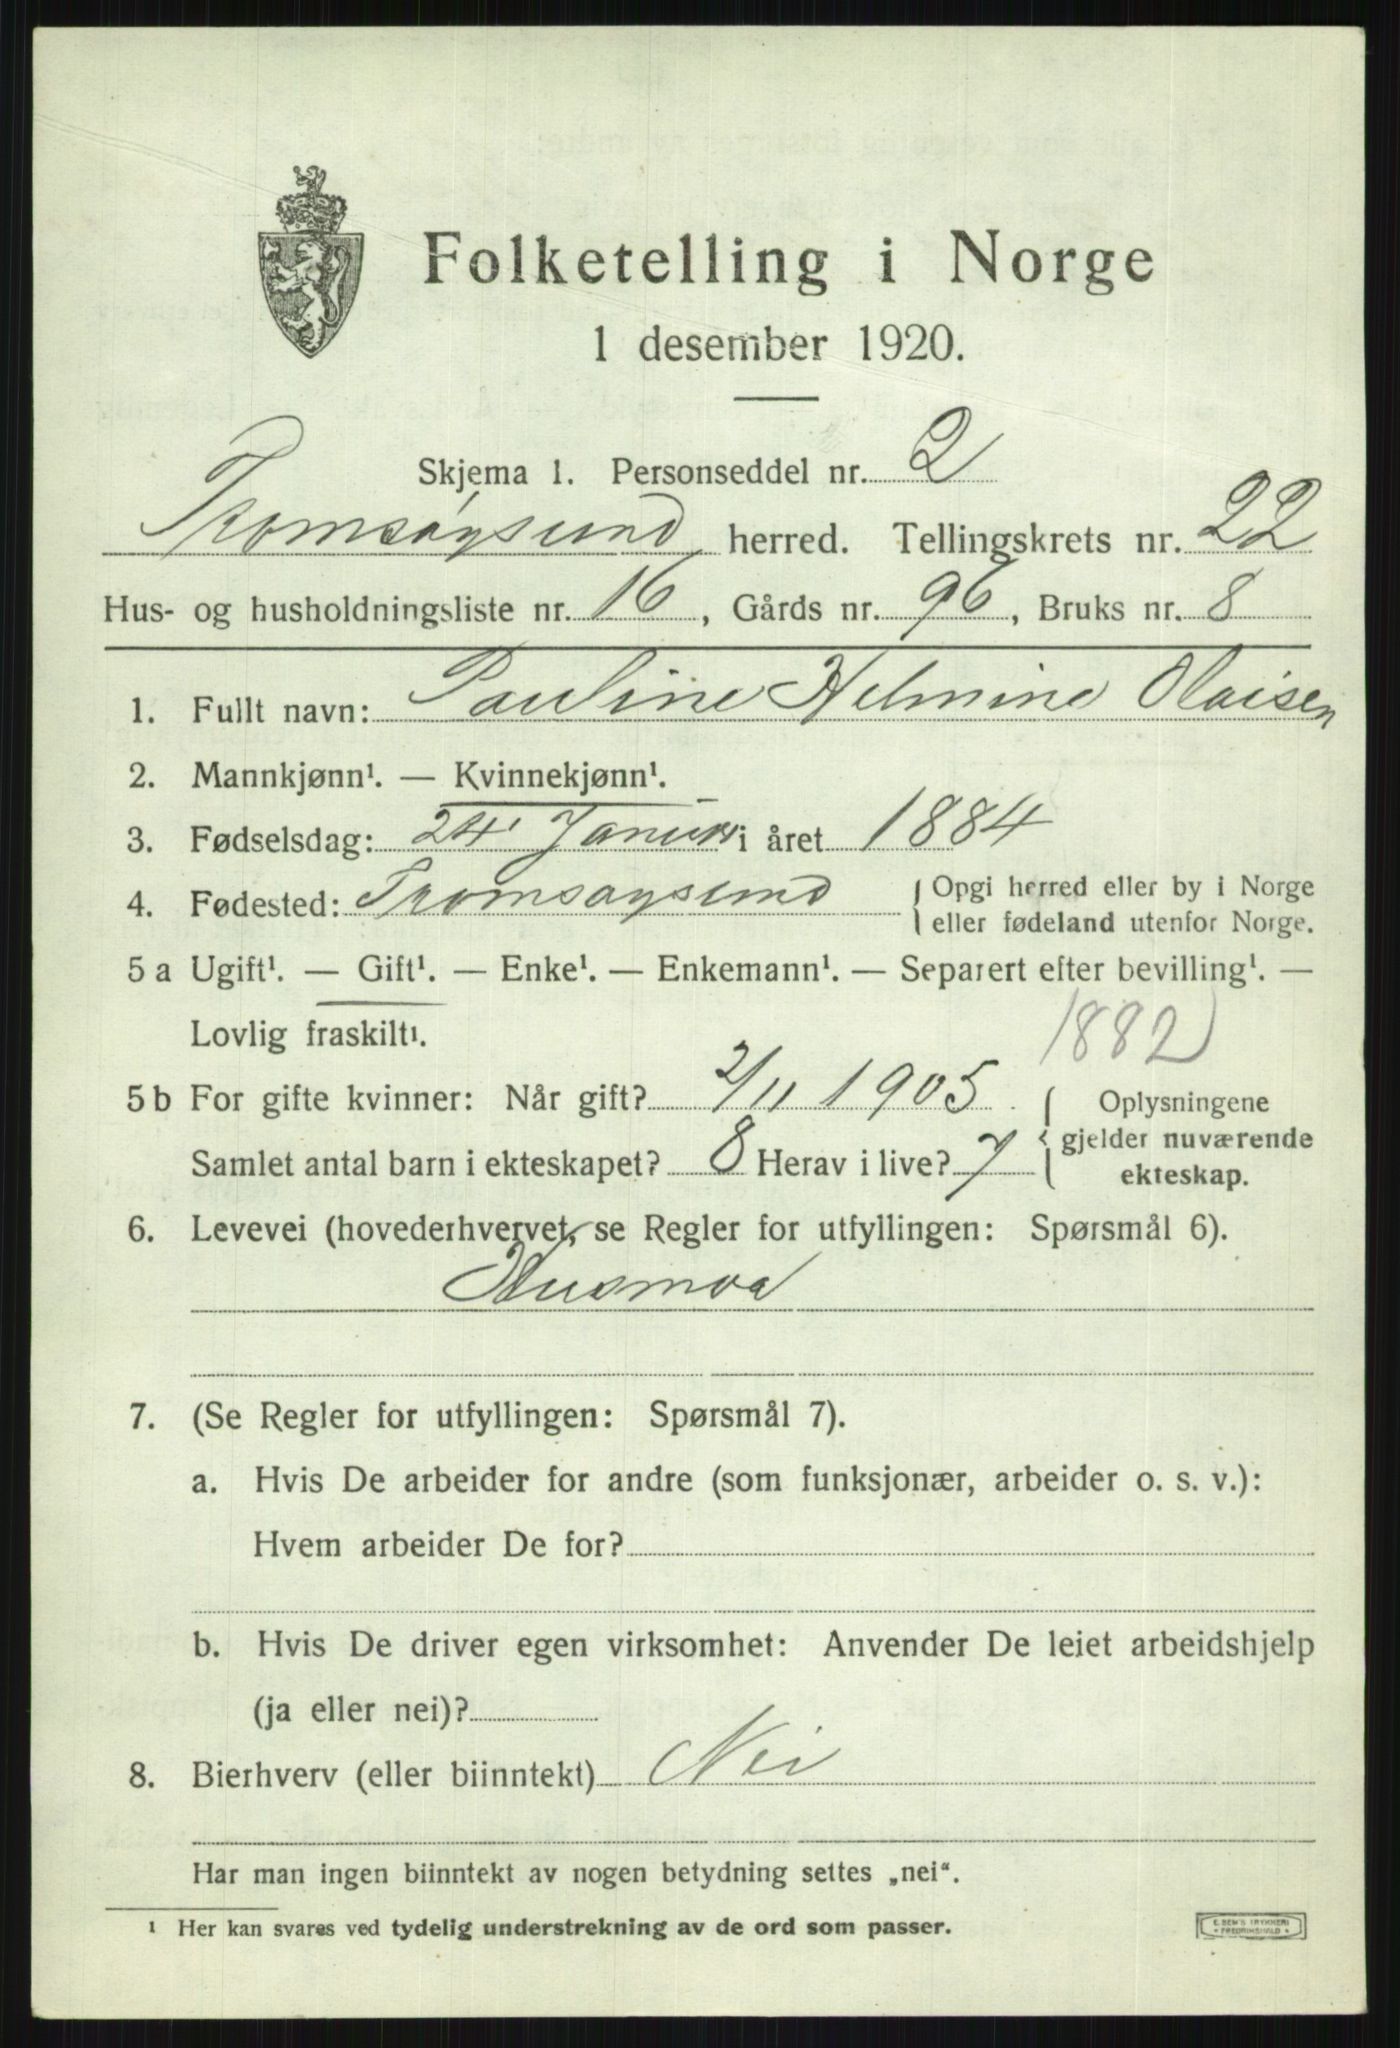 Folketelling i Norge
1 desember 1920.
Skjema 1. Personseddel nr. 2
Tromsøysund herred. Tellingskrets nr. 22
Hus- og husholdningsliste nr. 16, Gårds nr. 96, Bruks nr. 8
1. Fullt navn: Pauline Helmine Olaisen
2. Mannkjønn¹. — Kvinnekjønn¹.
3. Fødselsdag: 24 Januar i året 1884
4. Fødested: Tromsøysund { Opgi herred eller by i Norge
eller fødeland utenfor Norge.
5 a Ugift¹. — Gift¹. — Enke¹. — Enkemann¹. — Separert efter bevilling¹. —
Lovlig fraskilt¹.
1882
5 b For gifte kvinner: Når gift? 2/11 1905. { Oplysningene
gjelder nuværende
ekteskap.
Samlet antal barn i ekteskapet? 8 Herav i live? 7
6. Levevei (hovederhvervet, se Regler for utfyllingen: Spørsmål 6).
Husmoa
7. (Se Regler for utfyllingen: Spørsmål 7).
a. Hvis De arbeider for andre (som funksjonær, arbeider o. s. v.):
Hvem arbeider De for?
b. Hvis De driver egen virksomhet: Anvender De leiet arbeidshjelp
(ja eller nei)?
8. Bierhverv (eller biinntekt) Nei
Har man ingen biinntekt av nogen betydning settes „nei“.
¹ Her kan svares ved tydelig understrekning av de ord som passer.
E. SEM'S TRYKKERI
FREDRIKSHALD